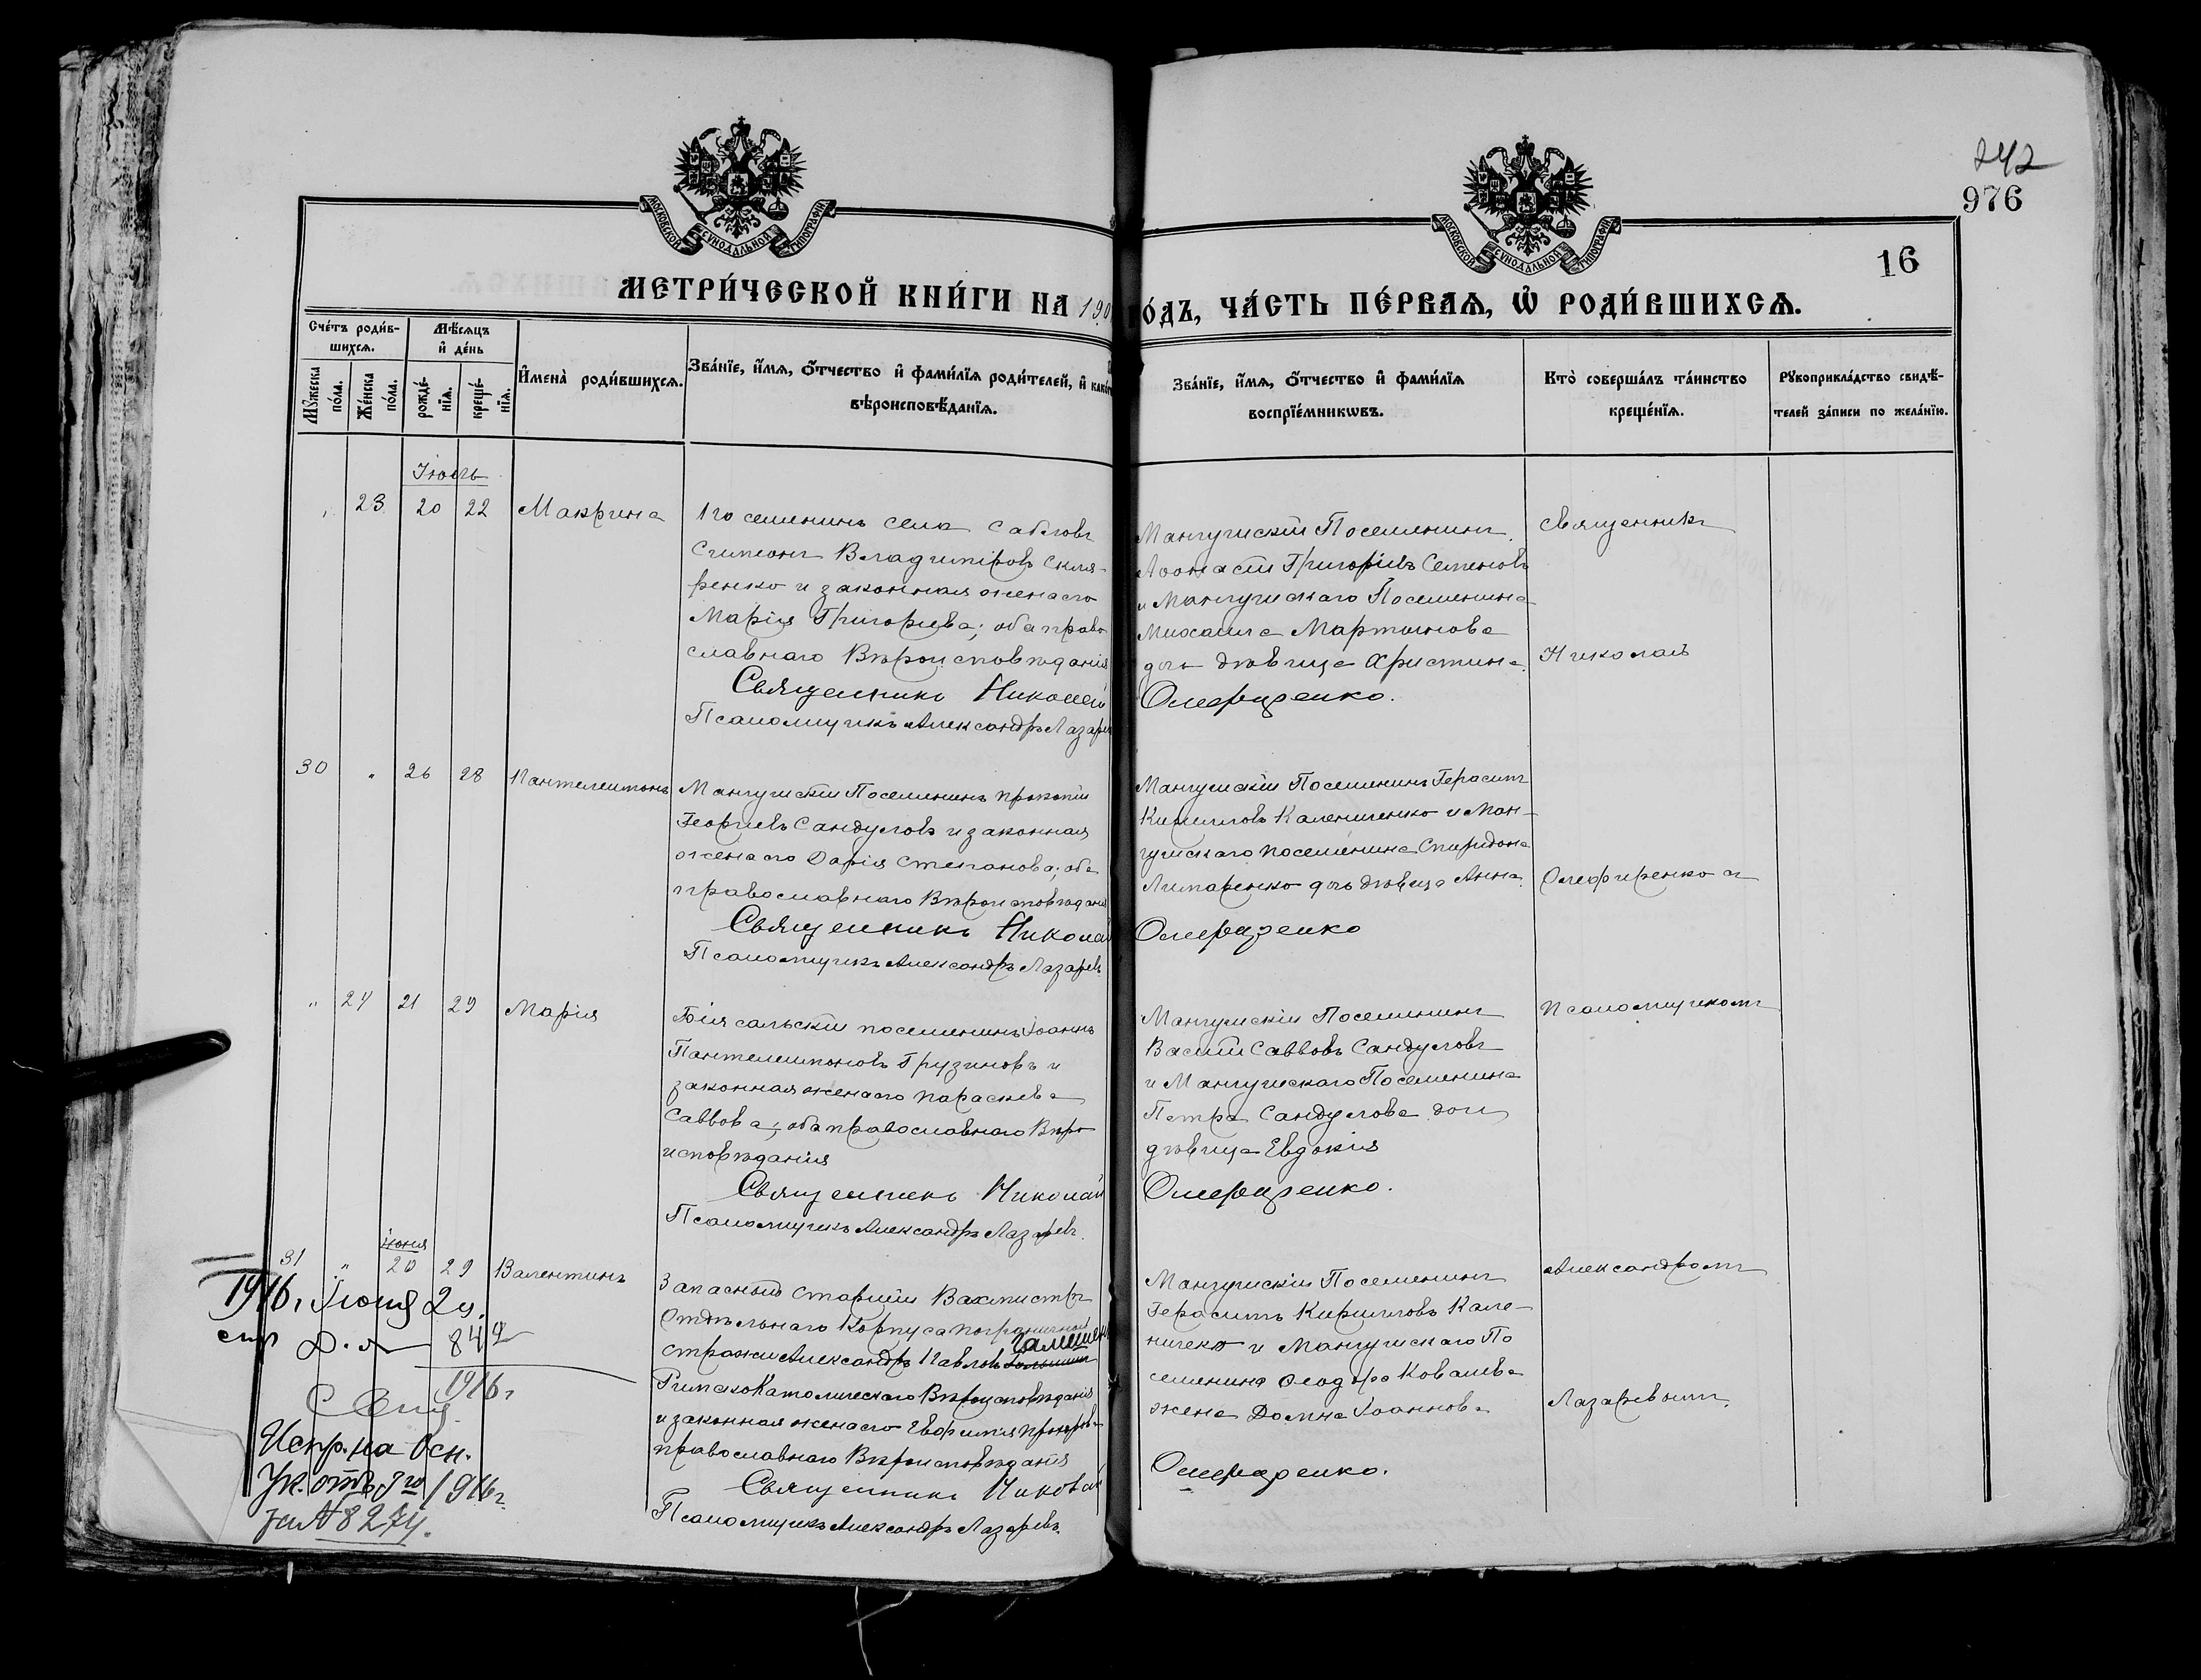 242
976
16
МОСКОВСКОЙ СУНОДАЛЬНОЙ ТИПОГРАФІИ
МОСКОВСКОЙ СУНОДАЛЬНОЙ ТИПОГРАФІИ
МЕТРИ́ЧЕСКОЙ КНИ́ГИ НА 190
О́ДЪ, ЧА́СТЬ ПЕ́РВАѦ, Ѽ РОДИ́ВШИХСѦ.
Сче́тъ роди́в-
шихсѧ.
Мѣ́сѧцъ
и҆ де́нь
Мꙋ́жеска
по́ла.
Же́нска
по́ла.
рожде́-
нїѧ.
креще́-
нїѧ.
И҆мена̀ роди́вшихсѧ.
Зва́нїе, и҆́мѧ, ѻ҆́тчество и҆ фами́лїѧ роди́телей, и҆ како́
вѣроисповѣ́данїѧ.
Зва́нїе, и҆́мѧ, ѻ҆́тчество и҆ фами́лїѧ
воспрїе́мникѡвъ.
Кто̀ соверша́лъ та́инство
креще́нїѧ.
Рꙋкоприкла́дство свидѣ́-
телей за́писи по жела́нїю.
Іюль
23 20 22 Макрина
Поселенинъ села Сабловъ
Симеонъ Владиміровъ Скля-
ренко и законная жена его
Марія Григорьева; оба право
славнаго Вѣроисповѣданія
Священникъ Николай
Псаломщикъ Александръ Лазарев
Мангушскій Поселенинъ
Аѳонасій Григоріевъ Семеновъ
и Мангушскаго Поселенина
Михаила Мартынова
дочь дѣвица Христина.
Олефиренко.
Священникъ
Николай
30 " 26 28 Пантелеимонъ
Мангушскій Поселенинъ Прокопій
Георгіевъ Сандуловъ и законная
жена его Дарія Степанова; оба
православнаго Вѣроисповѣданія
Священникъ Николай
Псаломщикъ Александръ Лазаревъ
Мангушскій Поселенинъ Герасимъ
Кирилловъ Калениченко и Ман-
гушскаго поселенина Спиридона
Литаренко дочь дѣвица Анна.
Олефиренко
Олефиренко съ
" 24 21 29 Марія
Біясальскій поселенинъ Іоаннъ
Пантелеимоновъ Грузиновъ и
законная жена его Параскева
Саввова; оба православнаго Вѣро
исповѣданія
Священникъ Николай
Псаломщикъ Александръ Лазаревъ.
Мангушскій Поселенинъ
Василій Саввовъ Сандуловъ
и Мангушскаго Поселенина
Петра Сандулова дочь
дѣвица Евдокія
Олефиренко.
Псаломщикомъ
іюня
31 " 20 29 Валентинъ
Запасный старшій Вахмистръ
Отдѣльнаго Корпуса пограничной
стражи Александръ Павловъ
Римско Католическаго Вѣроисповѣданія
и законная жена его Евфимія
православнаго Вѣроисповѣданія
Священникъ Николай
Псаломщикъ Александръ Лазаревъ.
Мангушскій Поселенинъ
Герасимъ Кирилловъ Кале-
ниченко и Мангушскаго По
селенина Ѳеодора Ковалева
жена Домна Іоаннова
Олефиренко.
Александромъ
Лазаревымъ.
1916, Іюня 24.
842
1916 г
Испр. на Осн.
Ук. отъ 1916 г
за № 8274.